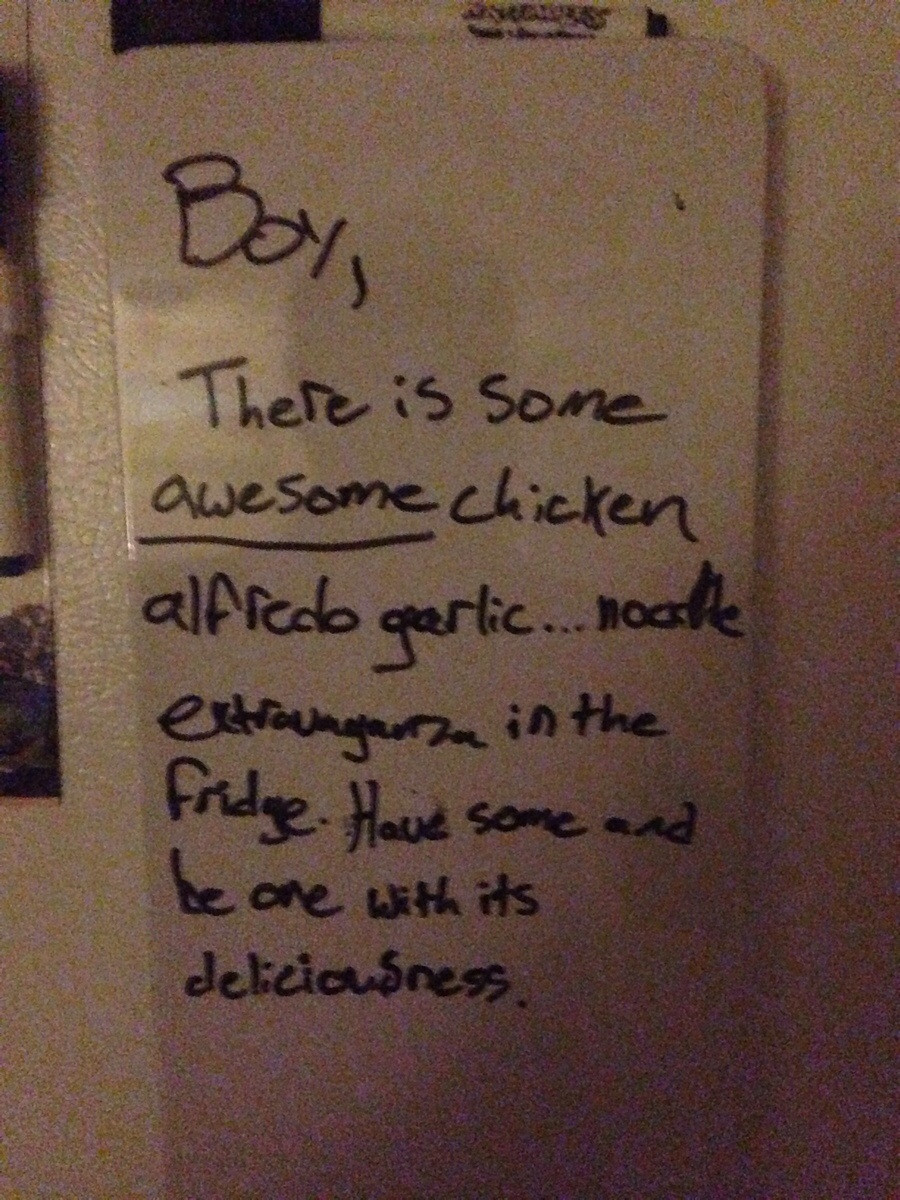 Boy,
There is some
awesome chicken
alfredo garlic... noodle
extravaganza in the
fridge. Have some and
be one with its
deliciousness.